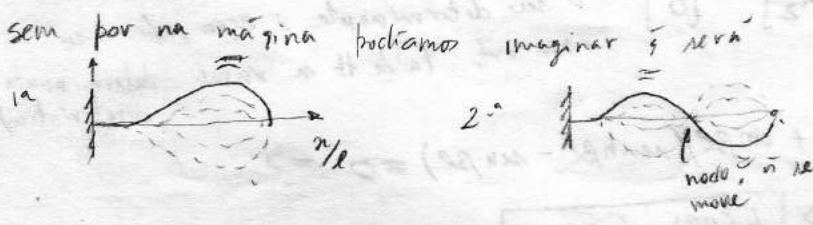 sem por na máquina podíamos imaginar q̃ será
1ª
x/l
2.ª
nodo, ñ se
move